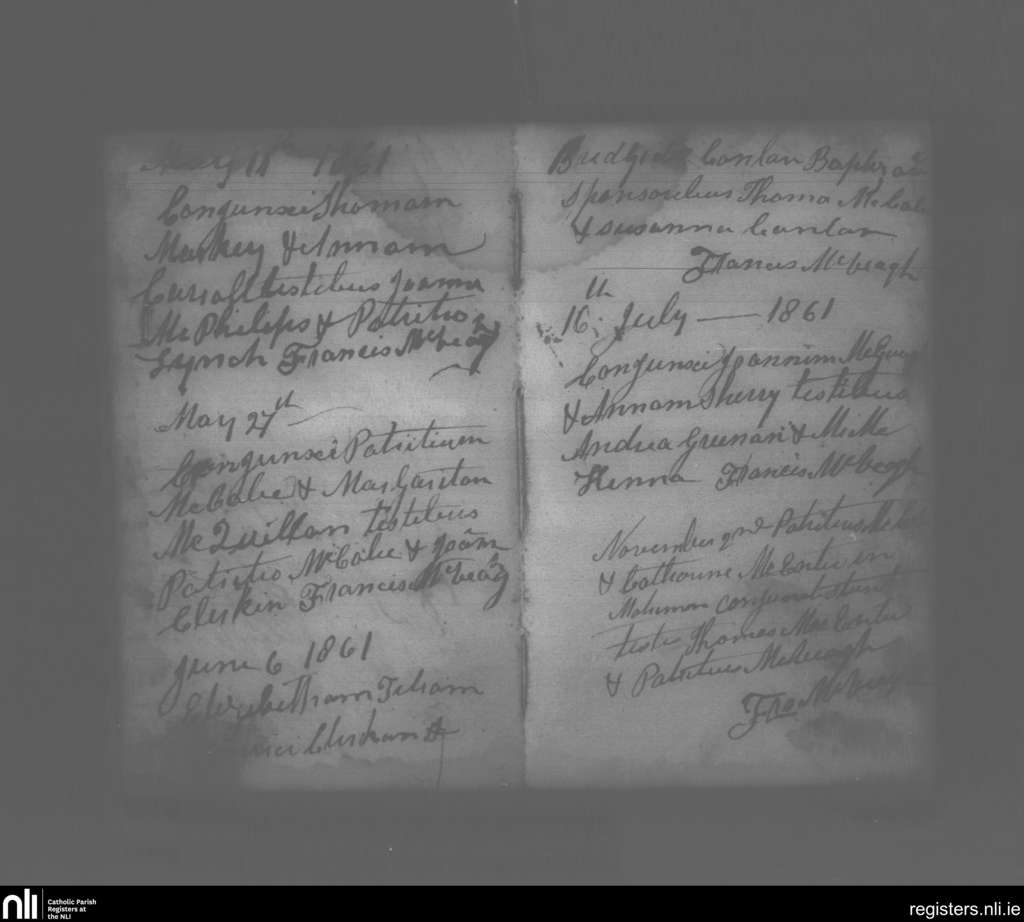 May 11th 1861
Conjunxi Thomam
Markey & Annam
testibus Joanna
McPhilips & Patritio
Lynch Francis McVeagh
May 27th
Conjunxi Patritium
McCabe & Margaritam
McQuillan testibus
Patritio McCabe & Joâm
Clerkin Francis McVeagh
June 6 1861
Elizabetham Filiam
Clerkan &
Bridgidæ Conlan Baptizavi
Sponsoribus Thoma McCabe
& Susanna Conlan
Francis McVeagh
16th July — 1861
Conjunxi Joannim
& Annam Sherry testibus
Andrea Greenan &
Kenna Francis McVeagh
November 2nd Patritius
& Catharine McEntee in
Matrimon conjuncti sunt
testes Thomas MacEntee
& Patritius McVeagh
Fra McVeagh
nli
Catholic Parish
Registers at
the NLI
registers.nli.ie